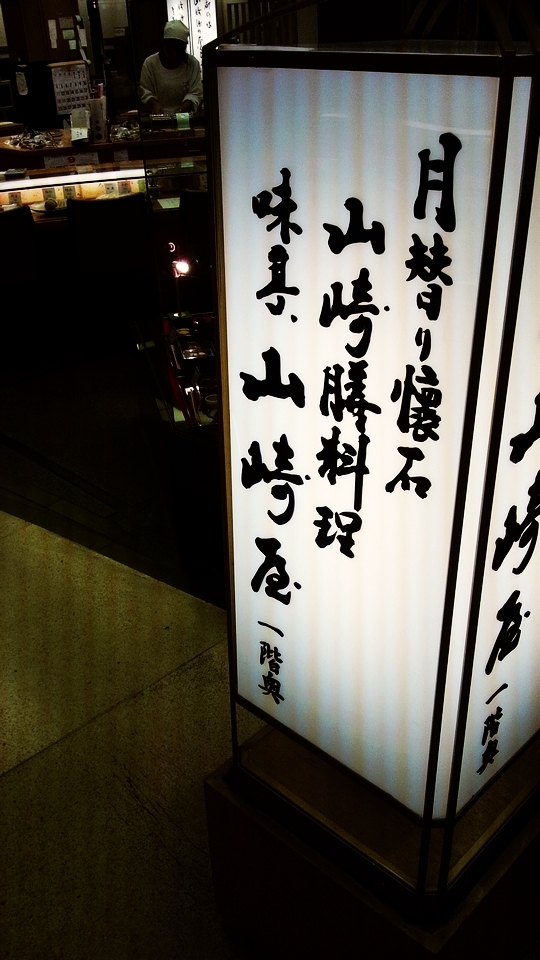 月替り懐石
山崎膳料理
味亭、山崎屋 一階奥
山崎屋 一階奥